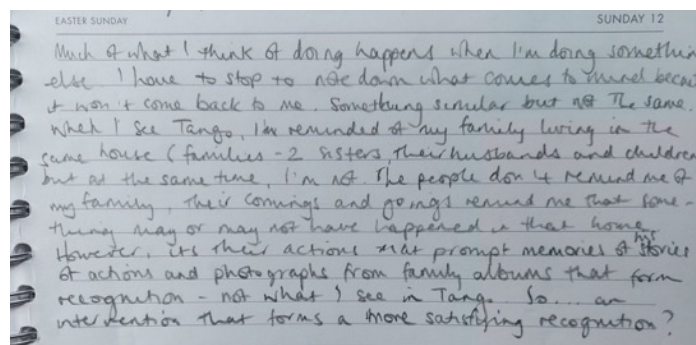 EASTER SUNDAY
SUNDAY 12
Much of what I think of doing happens when I'm doing somethin
else I have to stop to note down what comes to mind becau
it won't come back to me. Something similar but not the same.
when I see Tango, I'm reminded of my family living in the
same house (families - 2 sisters, their husbands and children
but at the same time, I'm not. The people don't remind me of
my family, their commings and goings remind me that some-
thing may or may not have happened in that home
However, its their actions that prompt memories of his stories
of actions and photographs from family albums that form
recognition - not what I see in Tango. So... an
intervention that forms a more satisfying recognition?